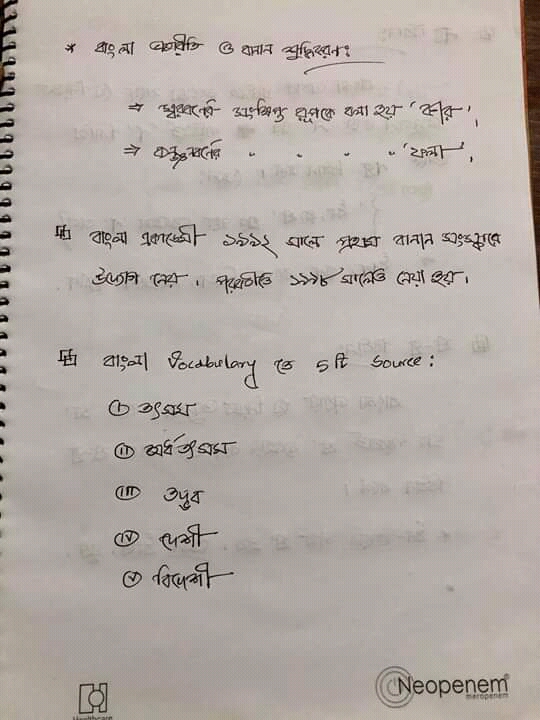 * বাংলা বানানরীতি ও বানান শুদ্ধিকরণঃ
⇒ স্বরবর্নের সংক্ষিপ্ত রূপকে বলা হয় 'কার',
⇒ ব্যঞ্জনবর্নের " " " " 'ফলা',
বাংলা একাডেমী ১৯৯২ সালে প্রথম বানান সংস্কারে
উদ্যোগ নেয়। পরবর্তীতে ১৯৯৪ সালেও নেয়া হয়।
বাংলা Vocabulary তে ৫টি Source:
(i) তৎসম
(ii) অর্ধতৎসম
(iii) তদ্ভব
(iv) দেশী
(v) বিদেশী
Healthcare
Neopenem®
meropenem